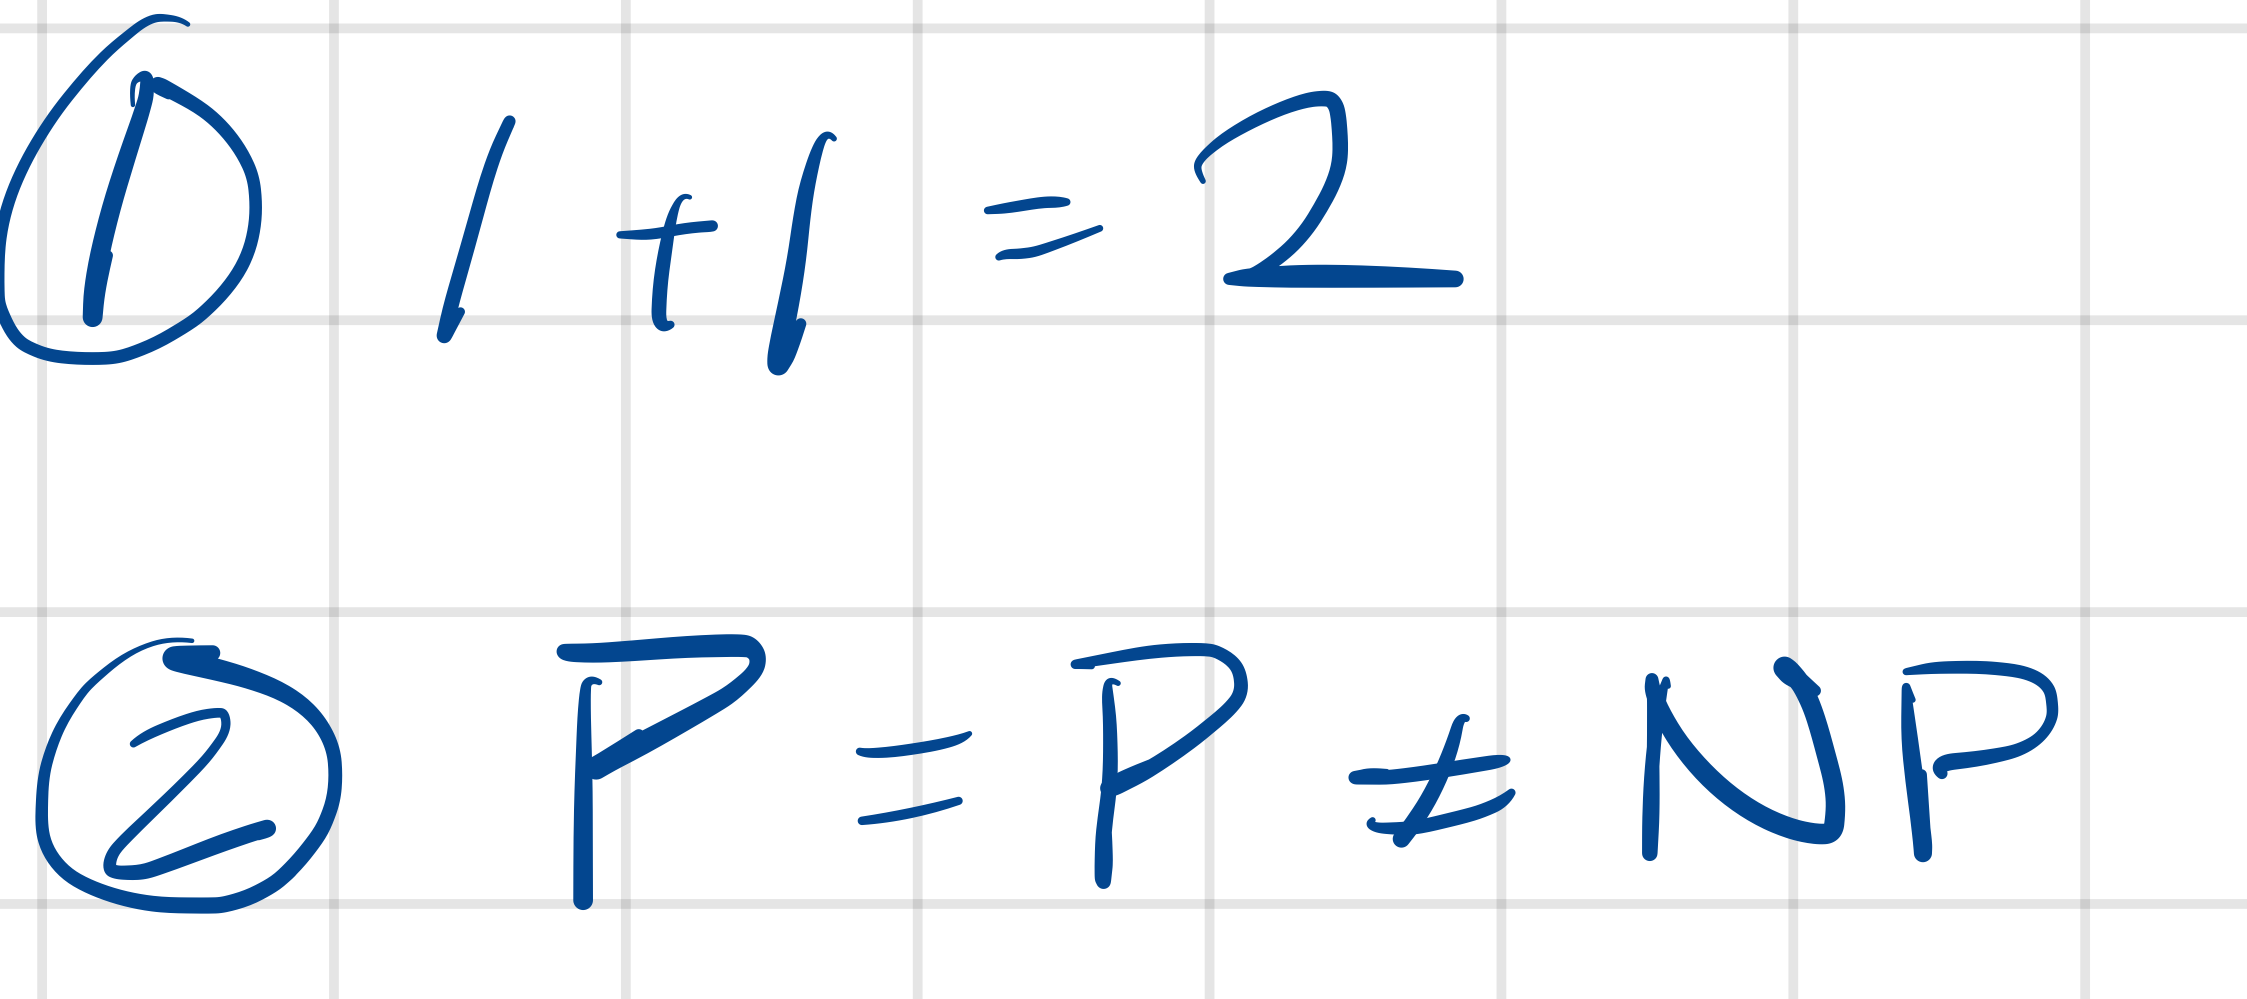 ① 1 + 1 = 2
② P = P ≠ NP